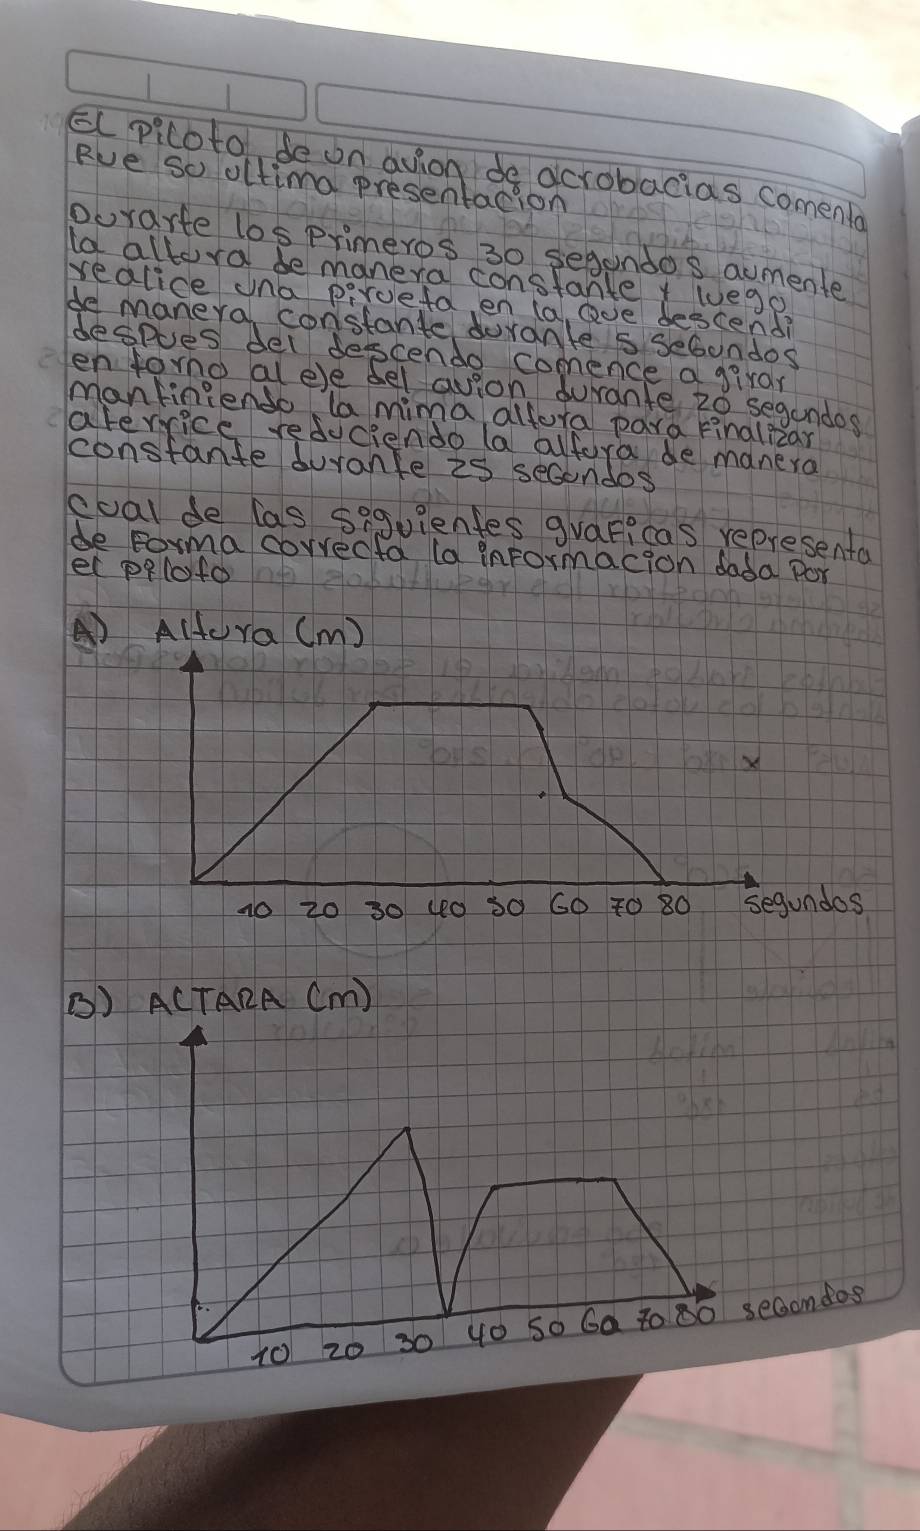 EL piloto de un avion de acrobacias comenta
Rue so ultima presentacion
Durarte los primeros 30 segundos aumente
la altura de manera constante y luego
realice una pirueta en la que descendi
de manera constante durante 5 segundos
despues del descendo comence a girar
en torno al eje del avion durante 20 segundos
mantiniendo la mima altura para finalizar
aterrice reduciendo la altura de manera
constante durante 25 segundos
cual de las siguientes graficas representa
de forma correcta la informacion dada por
el piloto
A) Altura (m)
x
10 20 30 40 50 60 70 80 segundos
B) ALTARA (m)
10 20 30 40 50 60 70 80 segondos